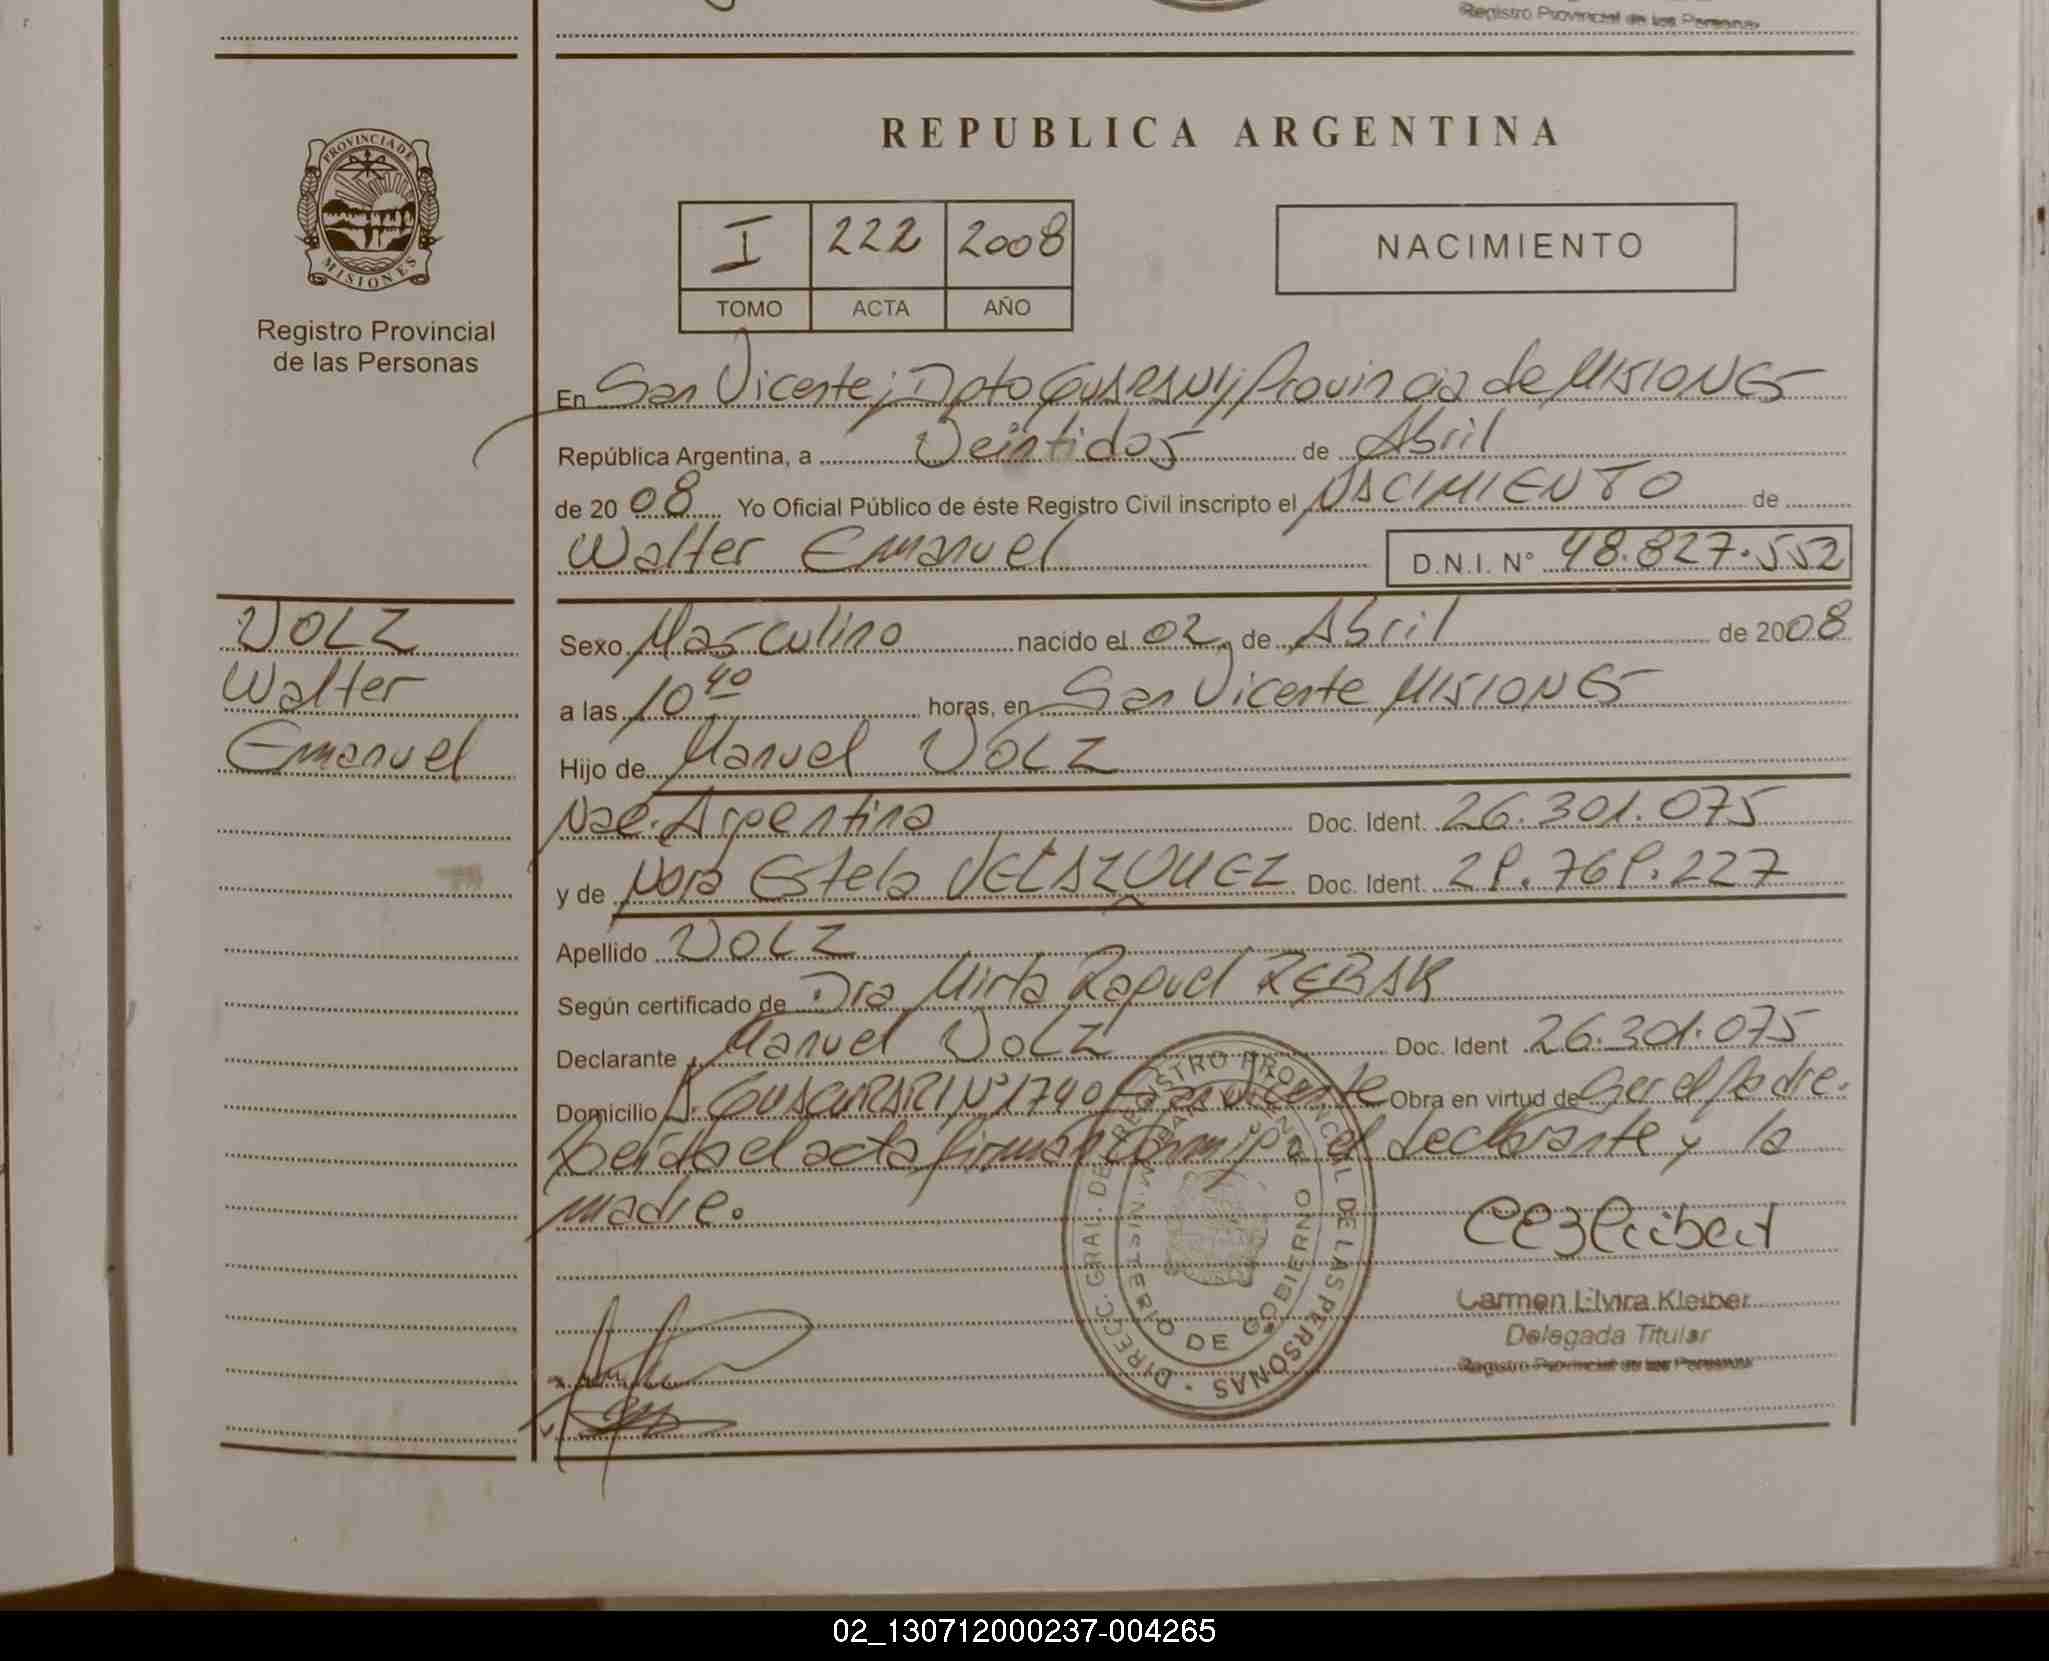 Registro Provincial de las Personas
PROVINCIA DE
MISIONES
Registro Provincial
de las Personas
REPUBLICA ARGENTINA
I 222 2008
TOMO ACTA AÑO
NACIMIENTO
En San Vicente; Dpto GUARANI; Provincia de MISIONES
República Argentina, a Veintidos de Abril
de 20 08 Yo Oficial Público de éste Registro Civil inscripto el NACIMIENTO de
Walter Emanuel D.N.I. Nº 48.827.552
VOLZ
Walter
Emanuel
Sexo Masculino nacido el 02 de Abril de 2008
a las 10 40 horas, en San Vicente MISIONES
Hijo de Manuel VOLZ
Nac. Argentina Doc. Ident. 26.301.075
y de Nora Estela VELAZQUEZ Doc. Ident. 29.769.227
Apellido VOLZ
Según certificado de Dra Mirta Raquel
Declarante Manuel VOLZ Doc. Ident 26.301.075
Domicilio A. GUACURARI Nº 1740 San Vicente Obra en virtud de Ser el padre.
Leída el acta firman conmigo el declarante y la
madre.
DIRECC. GRAL. DEL REGISTRO PROVINCIAL DE LAS PERSONAS
MINISTERIO DE GOBIERNO
Carmen Elvira Kleiber
Delegada Titular
Registro Provincial de las Personas
02_130712000237-004265